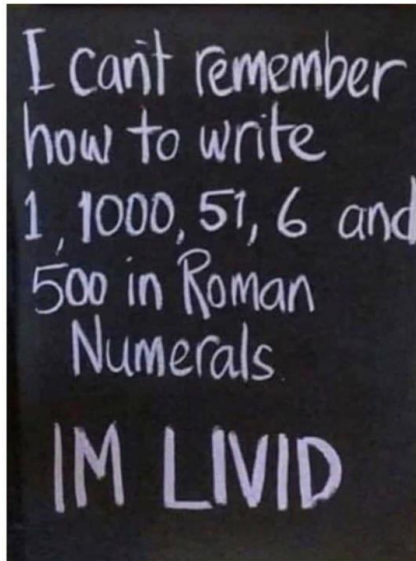 I can't remember
how to write
1, 1000, 51, 6 and
500 in Roman
Numerals.
IM LIVID